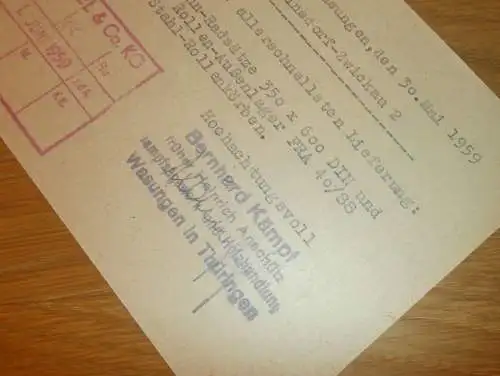 L & Co. KG
1. JUNI 1959
sungen, den 30. Mai 1959
insdorf-Zwickau 2
allerschnellsten Lieferung:
n-Radsätze 350 x 600 DIN und
Rollen-Außenlager FRA 40/SS
Stahl-Rollenkörben.
Hochachtungsvoll
Bernhard Kämpf
früher Heinrich Anschütz
Dampfsägewerk und Holzhandlung
Wasungen in Thüringen